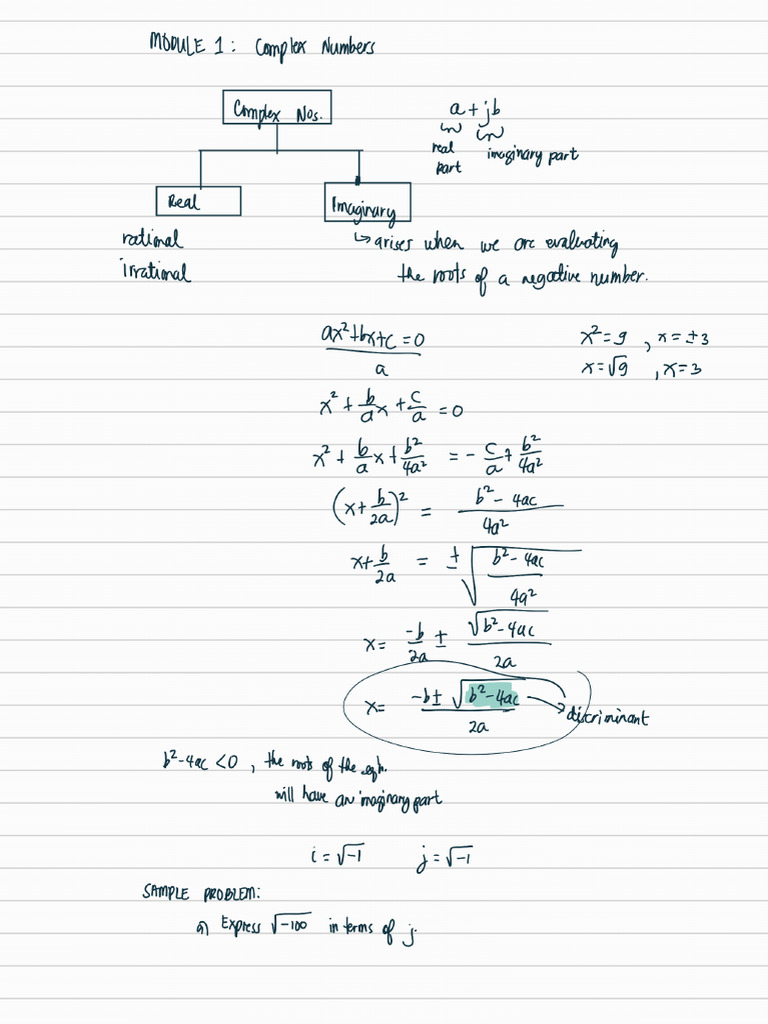 MODULE 1: Complex Numbers
Complex Nos.
a + jb
real part
imaginary part
Real
Imaginary
rational
irrational
↳ arises when we are evaluating
the roots of a negative number.
ax²+bx+c = 0
a
x² = 9 , x = ±3
x = √9 , x = 3
x² + b/a x + c/a = 0
x² + b/a x + b²/4a² = - c/a + b²/4a²
(x + b/2a)² = b² - 4ac / 4a²
x + b/2a = ± √(b² - 4ac / 4a²)
x = -b/2a ± √(b² - 4ac) / 2a
x = -b ± √(b² - 4ac) / 2a → discriminant
b² - 4ac < 0 , the roots of the eqn.
will have an imaginary part
i = √-1 j = √-1
SAMPLE PROBLEM:
a) Express √-100 in terms of j.